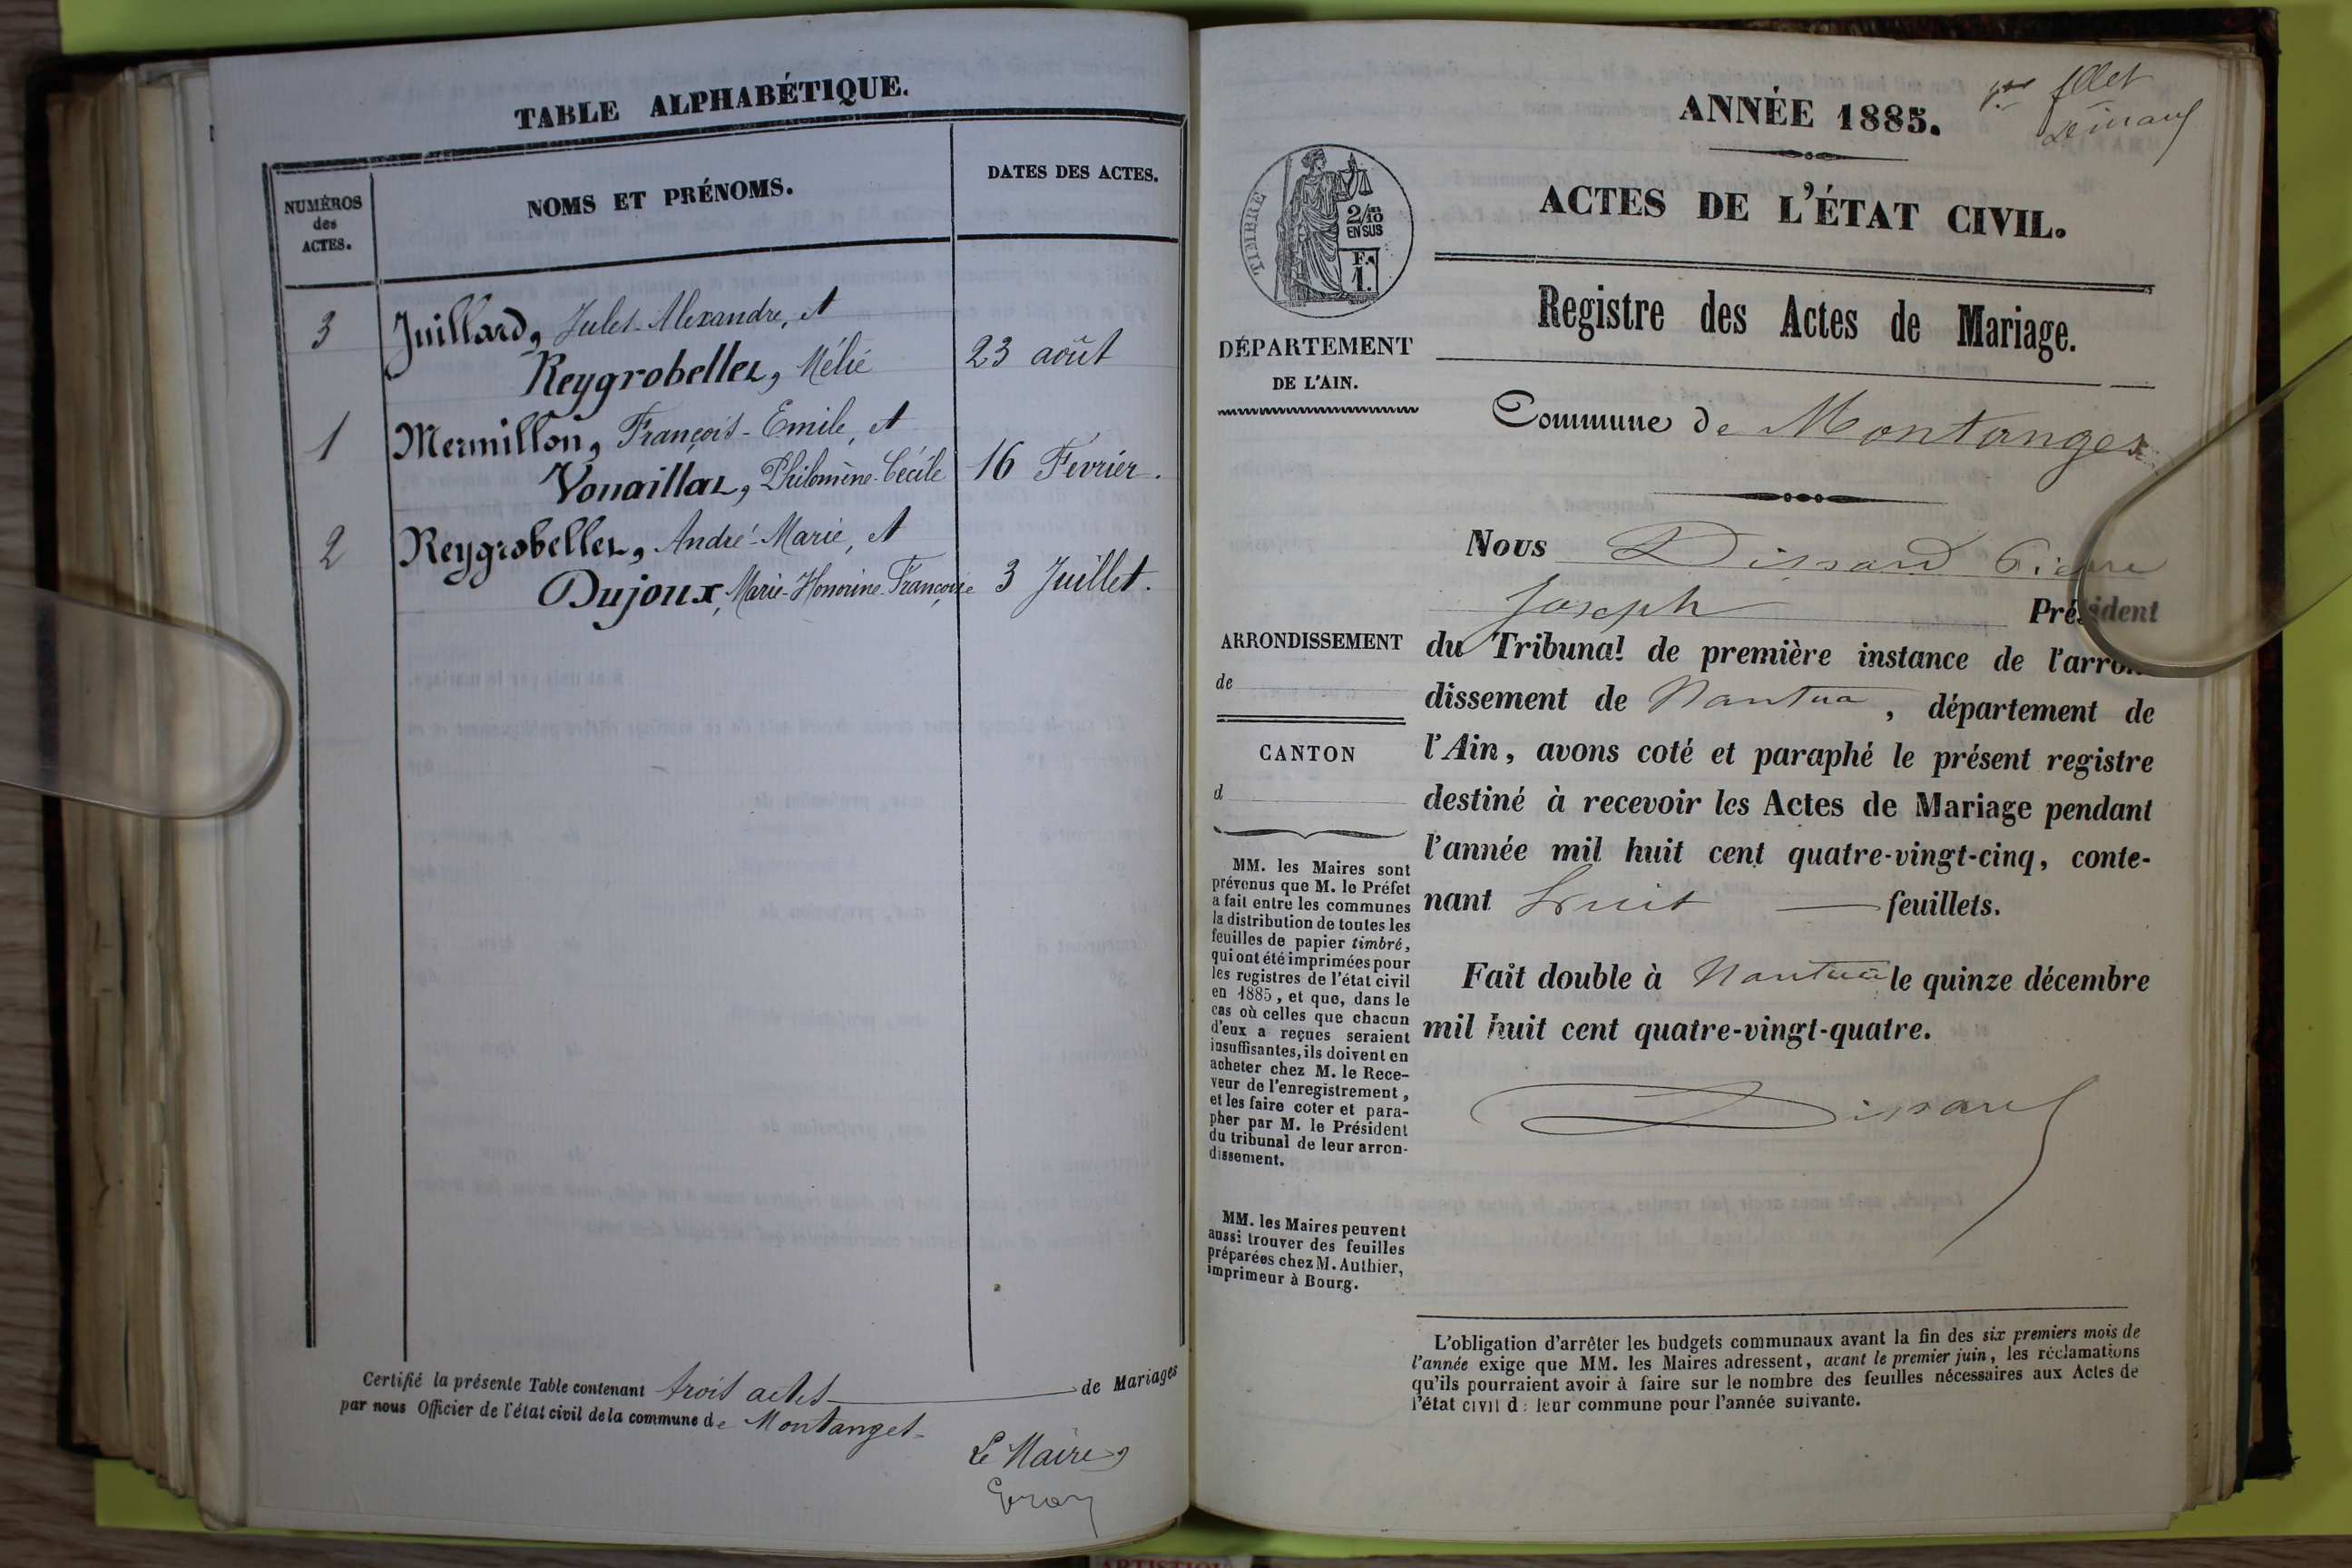 TABLE ALPHABÉTIQUE.
NUMÉROS
des
ACTES.
NOMS ET PRÉNOMS.
DATES DES ACTES.
3 Juillard, Jules-Alexandre, et
Reygrobellet, Mélie 23 août
1 Mermillon, François-Emile, et
Vouaillat, Philomène-Cécile 16 Février.
2 Reygrobellet, André-Marie, et
Dujoux, Marie-Honorine-Françoise 3 Juillet.
Certifié la présente Table contenant trois actes de Mariages
par nous Officier de l'état civil de la commune de Montanges
Le Maire,
ANNÉE 1885.
ACTES DE L'ÉTAT CIVIL.
TIMBRE
2/10
EN SUS
F.
1.
Registre des Actes de Mariage.
DÉPARTEMENT
DE L'AIN.
Commune de Montanges
Nous Dissard Pierre
Joseph Président
ARRONDISSEMENT
de
CANTON
d
du Tribunal de première instance de l'arron-
dissement de Nantua, département de
l'Ain, avons coté et paraphé le présent registre
destiné à recevoir les Actes de Mariage pendant
l'année mil huit cent quatre-vingt-cinq, conte-
nant huit feuillets.
Fait double à Nantua le quinze décembre
mil huit cent quatre-vingt-quatre.
Dissard
MM. les Maires sont
prévenus que M. le Préfet
a fait entre les communes
la distribution de toutes les
feuilles de papier timbré,
qui ont été imprimées pour
les registres de l'état civil
en 1885, et que, dans le
cas où celles que chacun
d'eux a reçues seraient
insuffisantes, ils doivent en
acheter chez M. le Rece-
veur de l'enregistrement,
et les faire coter et para-
pher par M. le Président
du tribunal de leur arron-
dissement.
MM. les Maires peuvent
aussi trouver des feuilles
préparées chez M. Authier,
imprimeur à Bourg.
L'obligation d'arrêter les budgets communaux avant la fin des six premiers mois de
l'année exige que MM. les Maires adressent, avant le premier juin, les réclamations
qu'ils pourraient avoir à faire sur le nombre des feuilles nécessaires aux Actes de
l'état civil de leur commune pour l'année suivante.